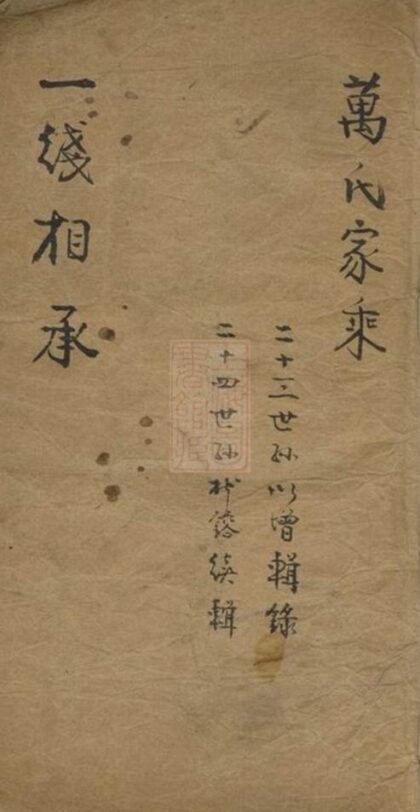 萬氏家乘
二十三世孫以增輯錄
二十四世孫續輯
一綫相承